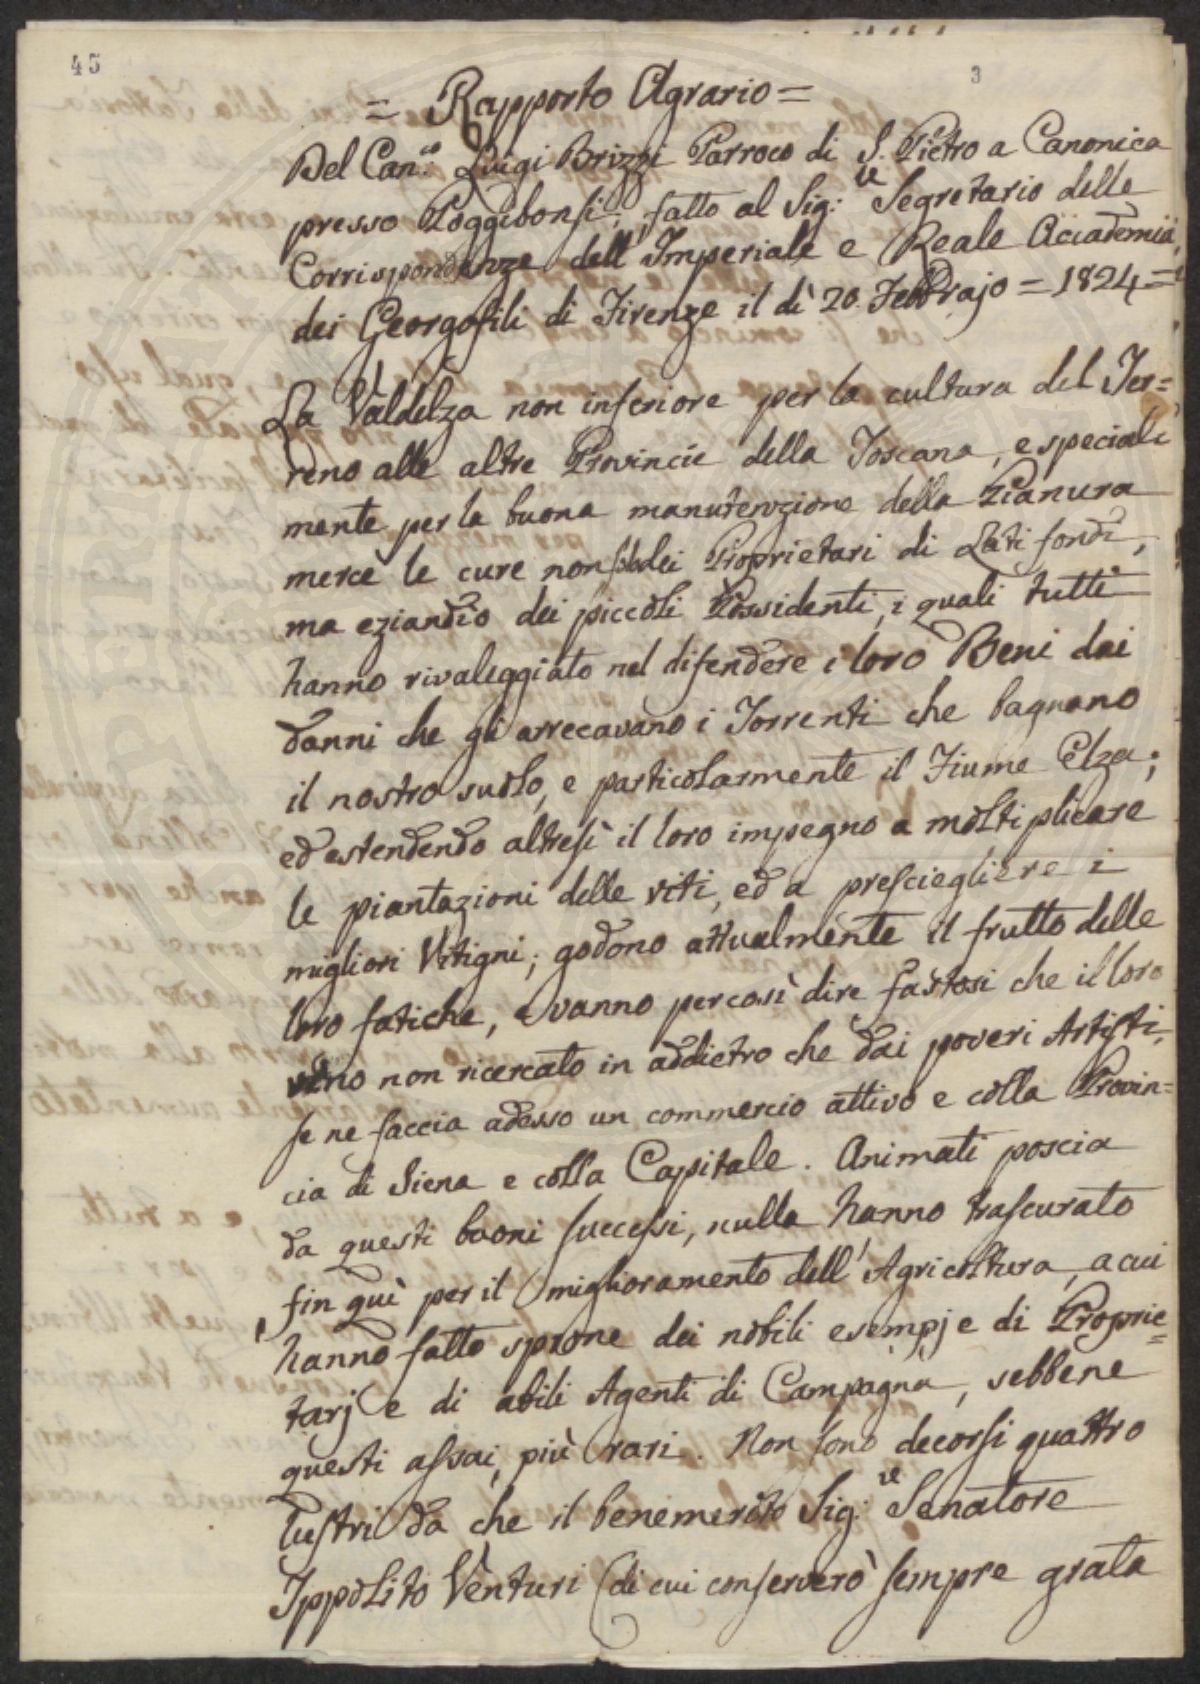 45
3
= Rapporto Agrario =
Del Can.co Luigi Brizzi Parroco di S. Pietro a Canonica
presso Poggibonsi; fatto al Sig:re Segretario delle
Corrispondenze dell'Imperiale e Reale Accademia
dei Georgofili di Firenze il dì 20. Febbrajo = 1824 =
La Valdelza non inferiore per la cultura del Ter=
reno alle altre Provincie della Toscana, e special
mente per la buona manutenzione della Pianura
mercè le cure non solo dei Proprietari di Latifondi,
ma eziandio dei piccoli Possidenti, i quali tutti
hanno rivaleggiato nel difendere i loro Beni dai
danni che gli arrecavano i Torrenti che bagnano
il nostro suolo, e particolarmente il Fiume Elza;
ed estendendo altresì il loro impegno a moltiplicare
le piantazioni delle viti, ed a presciegliere i
migliori Vitigni; godono attualmente il frutto delle
loro fatiche, e vanno per così dire fastosi che il loro
vino non ricercato in addietro che dai poveri Artisti,
se ne faccia adesso un commercio attivo e colla Provin=
cia di Siena e colla Capitale. Animati poscia
da questi buoni successi, nulla hanno trascurato
fin quì per il miglioramento dell'Agricoltura, a cui
hanno fatto sprone dei nobili esempj e di Proprie=
tarj e di abili Agenti di Campagna, sebbene
questi assai più rari. Non sono decorsi quattro
lustri da che il benemerito Sig:re Senatore
Ippolito Venturi (di cui conserverò sempre grata